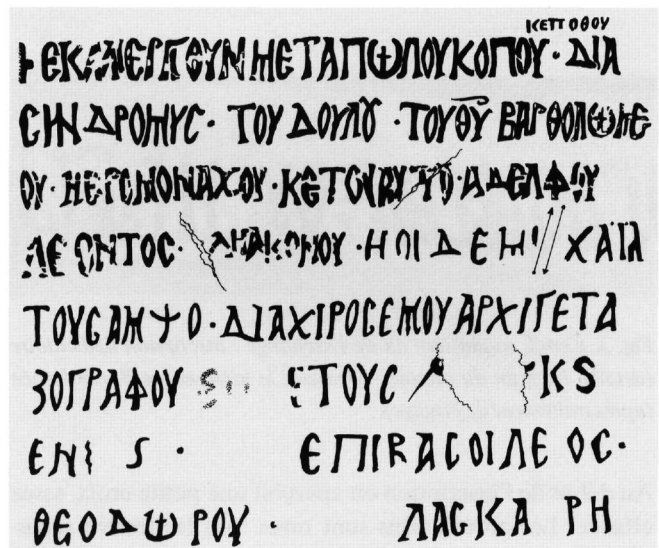 ΚΕΤΤΟΘΟΥ
ΜΕΤΑΠΩΛΟΥΚΟΠΟΥ· ΔΙΑ
CΗΝΔΡΟΜΥC· ΤΟΥ ΔΟΥΛȢ · ΤΟΥ ΘΥ ΒΑΡΘΟΛΩΜΕ
ΟΥ· ΗΕΡΟΜΟΝΑΧΟΥ· ΚΕ ΑΔΕΛΦΟΥ
ΛΕΟΝΤΟC· ΔΗΑΚΟΝΟΥ· ΗΟΙΔΕΗ ΧΑΪΛ
ΤΟΥCΑΜΨΟ·ΔΙΑΧΙΡΟCΕΜΟΥΑΡΧΙΓΕΤΑ
ΖΟΓΡΑΦΟΥ ΕΤΟΥC ΚS
ΕΝΙ S · ΕΠΙΒΑCΟΙΛΕΟC·
ΘΕΟΔΩΡΟΥ· ΛΑCΚΑΡΗ